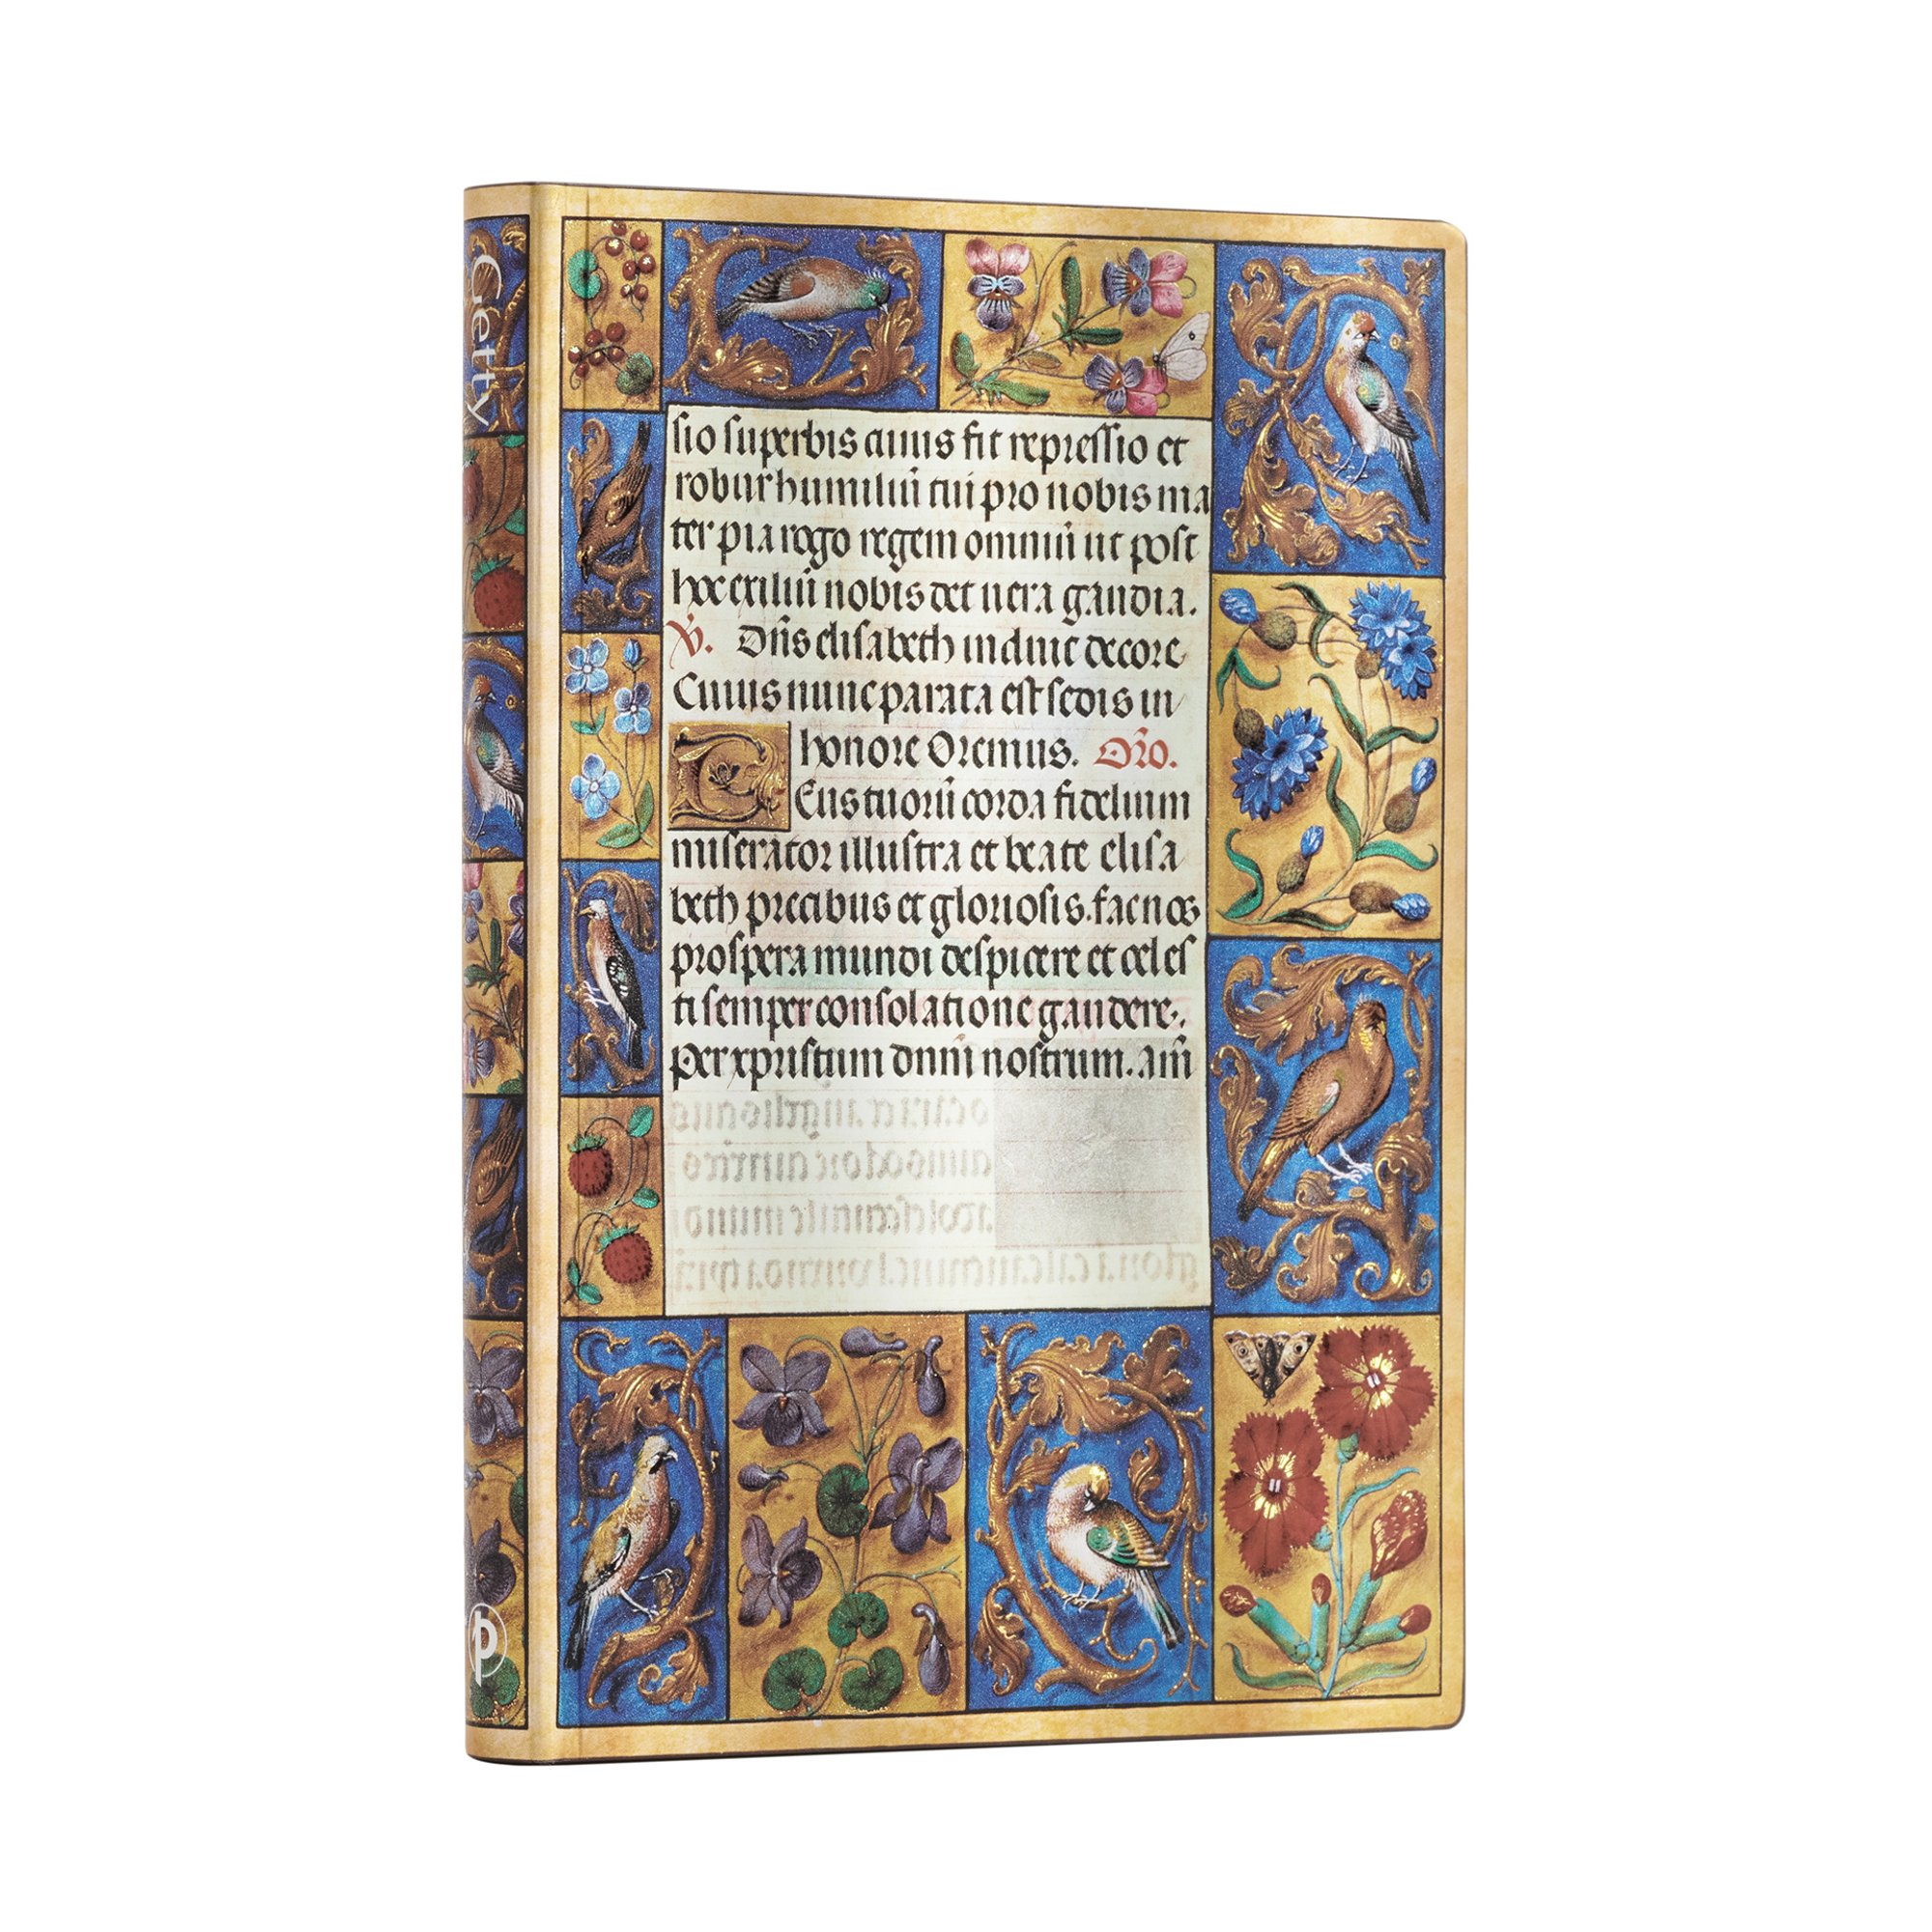 Getty
ſio ſuperbis cuius fit repreſſio et
robur humiliū tui pro nobis ma
ter pia rogo regem omniū ut poſt
hoc exiliū nobis det uera gaudia.
V. Dn̄s eliſabeth induit decore
Cuius nunc parata eſt ſedis in
honore Oremus. Oro.
Deus tuorū corda fidelium
miſerator illuſtra et beate eliſa
beth precibus et glorioſis. fac nos
proſpera mundi deſpicere et celeſ
ti ſemper conſolatione gaudere.
Per xpriſtum dnm̄ noſtrum. Am̄